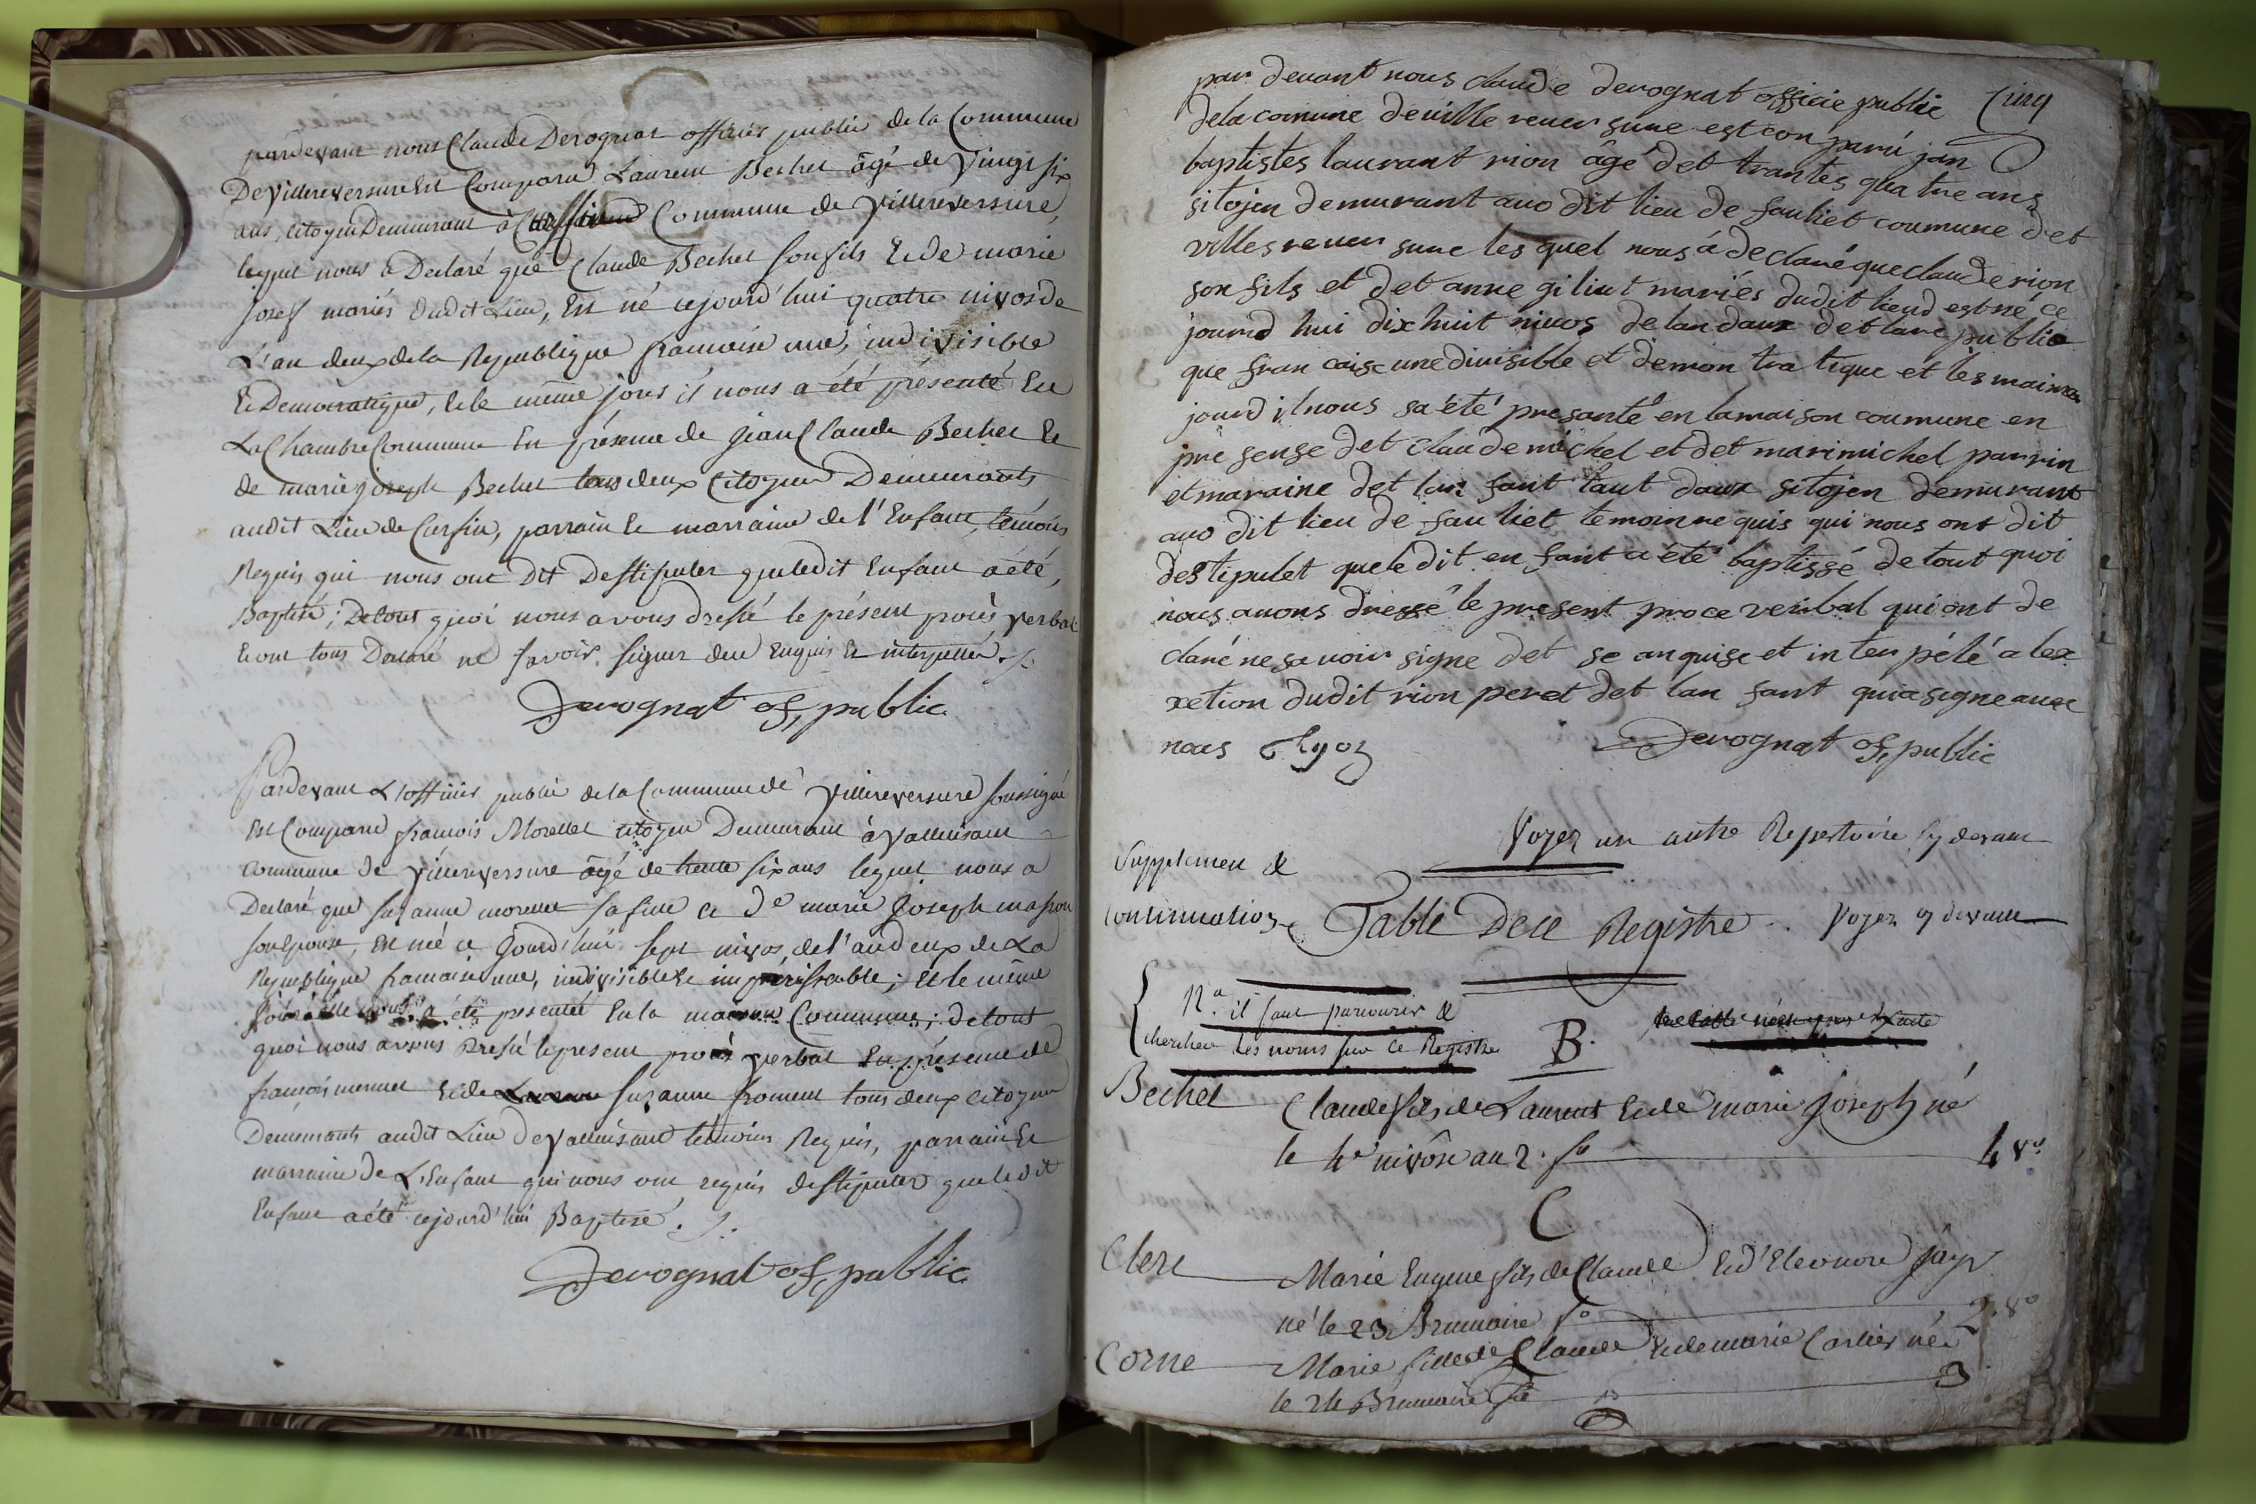 pardevant nous Claude Derognat officier public de la Commune
De Villereversure Est Comparu Laurent Bechet âgé de Vingt six
ans, Citoyen Demeurant à Commune de Villereversure,
lequel nous a Declaré que Claude Bechet son fils Et de marie
Josef mariés dudit Lieu, Est né cejourd'hui quatre nivosde
L'an deux de la Republique francoise une, indivisible
Et Democratique, Et le même jours il nous a été présenté En
La Chambre Commune En présence de Jean Claude Bechet Et
de marie joseph Bechet tous deux Citoyen Demeurants
audit Lieu de Cursin, parrain Et marraine de l'Enfant, témoins
Requis qui nous ont Dit De stipuler que ledit Enfant a été,
Baptisé; De tout quoi nous avons dressé le présent procès verbal
Et ont tous Declaré ne savoir signer de ce Enquis Et interpellés ./.
Derognat of, public
Pardevant L'officier public de la Commune de Villereversure soussigné
Est Comparu francois Morellet citoyen Demeurant à Valluisant
commune de Villereversure âgé de trente six ans lequel nous a
Declaré que suzanne morellet sa fille et de marie Joseph
son Epouse, Est né ce Jourd'hui sept nivos, de l'an deux de La
Republique francoise une, indivisible Et imperissable; Et le même
jour elle nous a été presenté En la maison Commune; de tout
quoi nous avons Dressé le present procès verbal En présence de
francois Et de suzanne froment tous deux citoyen
Demeurants audit Lieu de Valluisant temoins Requis, parrain Et
marraine de L'Enfant qui nous ont requis de stipuler que ledit
Enfant a été cejourd'hui Baptisé. ./.
Derognat of, public
par devant nous claude derognat officie public Cinq
dela comune de ville rever sure est con paru jan
baptistes laurant rion âgé det trantes quatre ans
sitojen demurant auo dit lieu de fouliet coumune det
villes rever sure les quel nous á declaré que claude rion
son fils et det anne giliut mariés dudit lieud est né ce
jourd hui dix huit nivos de lan daux det lare publie
que fran caise une divisible et demon tra tique et les maimes
jourd il nous sa été presanté en lamaison coumune en
pre sense det claude michel et det mari michel parrin
et maraine det lan fant taut daux sitojen demurant
auo dit lieu de fau liet temoin re quis qui nous ont dit
des tipulet que le dit en fant a été baptissé de tout quoi
nous avons dressé le present proce veribal qui ont de
claré ne savoir signe det se anquise et in ter pélé a lex
xetion dudit rion peret det lan fant qui a signe avec
nous Ryon Derognat of, public
Voyez un autre Repertoire cy devant
Supplement &
continuation Table De ce Registre. Voyez cy devant
Na. il faut parcourir &
chercher les noms sur ce Registre
B.
Bechet Claude fils de Laurent Et de marie Joseph né
le 4e nivôse an 2. fo 4 vo.
C
Clerc Marie Eugene fils de Claude Et d'Eleonore
né le 23 Brumaire fo 2. vo
Corne Marie fille de Claude Et de marie Carlier née
le 24 Brumaire fo 3